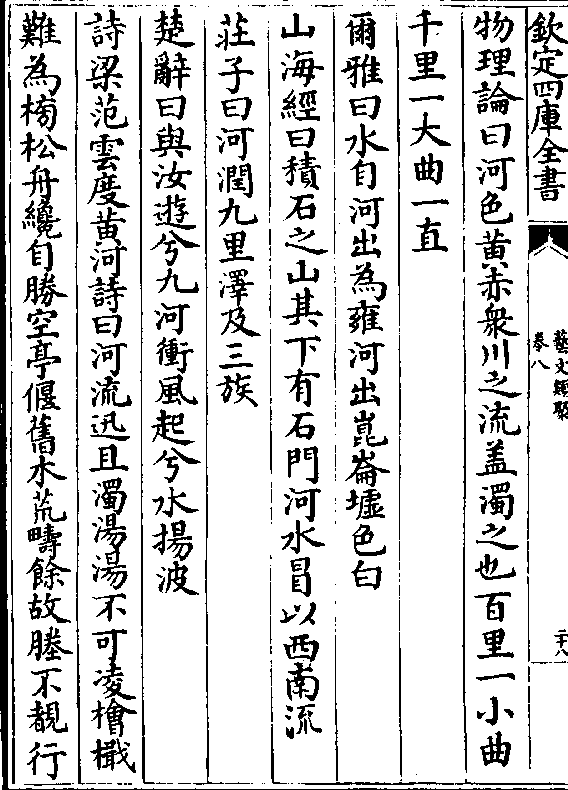 欽定四庫全書
藝文類聚
卷八
二十八
物理論曰河色黄赤衆川之流盖濁之也百里一小曲
千里一大曲一直
爾雅曰水自河出為雍河出崑崙墟色白
山海經曰積石之山其下有石門河水冒以西南流
莊子曰河潤九里澤及三族
楚辭曰與汝遊兮九河衝風起兮水揚波
詩梁范雲度黄河詩曰河流迅且濁湯湯不可凌檜檝
難為榜松舟纔自勝空亭偃舊水荒疇餘故塍不覩行